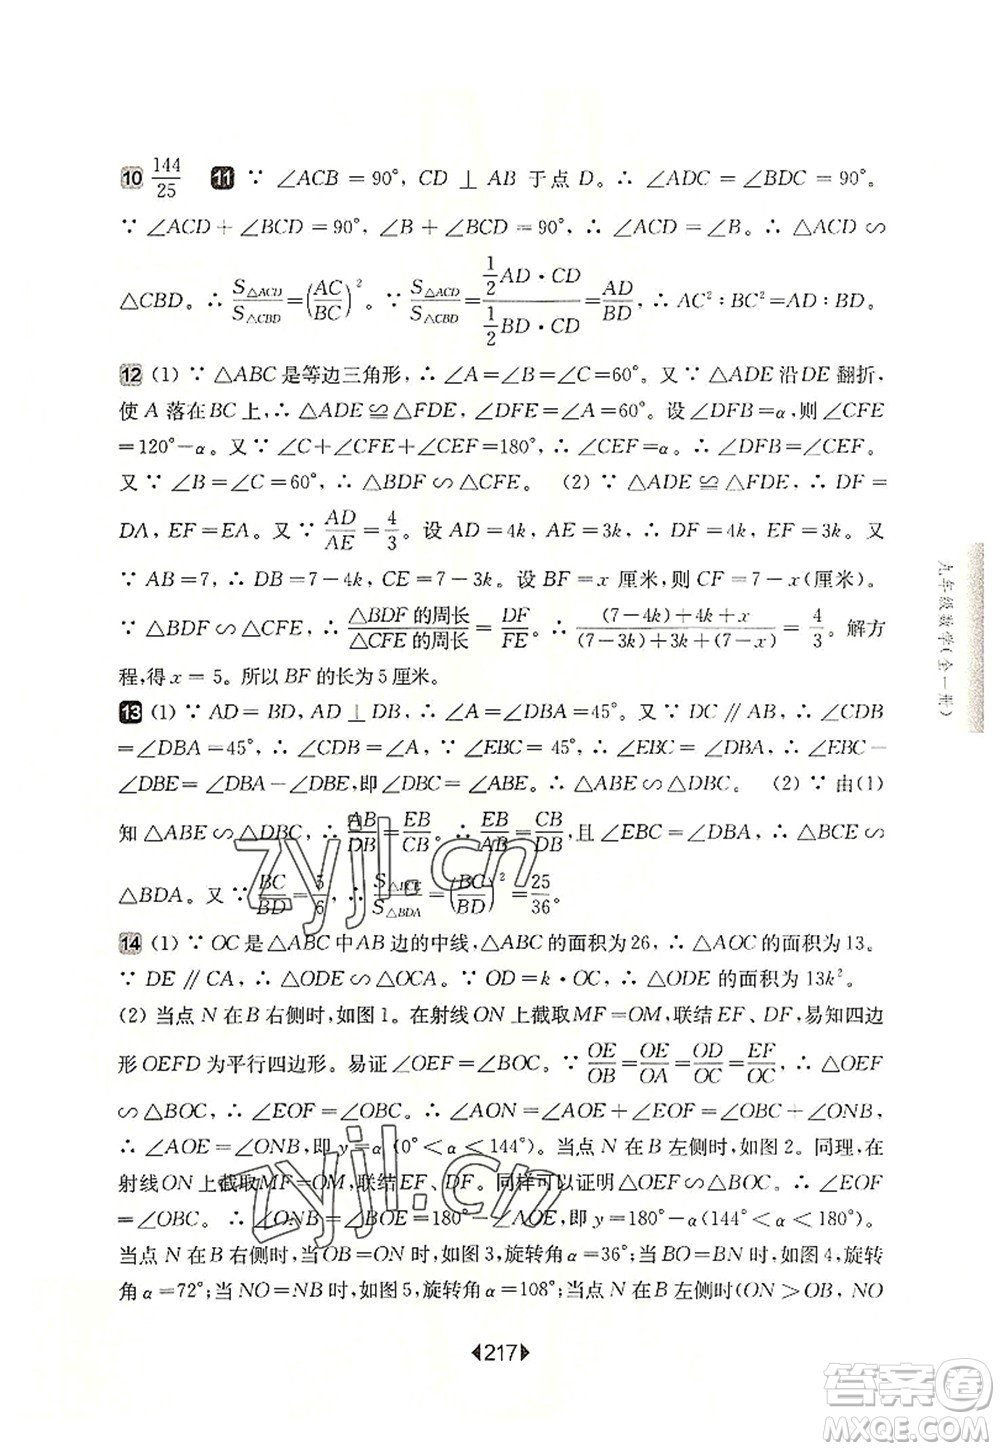 10 144/25 11 ∵ ∠ACB＝90°，CD⊥AB于点D。∴∠ADC＝∠BDC＝90°。
∵ ∠ACD＋∠BCD＝90°，∠B＋∠BCD＝90°，∴∠ACD＝∠B。∴△ACD∽
△CBD。∴ S△ACD/S△CBD＝(AC/BC)²。∵ S△ACD/S△CBD＝(1/2 AD·CD)/(1/2 BD·CD)＝AD/BD，∴ AC²∶BC²＝AD∶BD。
12 (1) ∵ △ABC是等边三角形，∴∠A＝∠B＝∠C＝60°。又∵ △ADE沿DE翻折，
使A落在BC上，∴△ADE≌△FDE，∠DFE＝∠A＝60°。设∠DFB＝α，则∠CFE
＝120°－α。又∵ ∠C＋∠CFE＋∠CEF＝180°，∴∠CEF＝α。∴∠DFB＝∠CEF。
又∵ ∠B＝∠C＝60°，∴△BDF∽△CFE。 (2) ∵ △ADE≌△FDE，∴ DF＝
DA，EF＝EA。又∵ AD/AE＝4/3。设AD＝4k，AE＝3k，∴ DF＝4k，EF＝3k。又
∵ AB＝7，∴ DB＝7－4k，CE＝7－3k。设BF＝x厘米，则CF＝7－x(厘米)。
∵ △BDF∽△CFE，∴ △BDF的周长/△CFE的周长＝DF/FE。∴ ((7－4k)＋4k＋x)/((7－3k)＋3k＋(7－x))＝4/3。解方
程，得x＝5。所以BF的长为5厘米。
13 (1) ∵ AD＝BD，AD⊥DB，∴∠A＝∠DBA＝45°。又∵ DC∥AB，∴∠CDB
＝∠DBA＝45°，∴∠CDB＝∠A，∵∠EBC＝45°，∴∠EBC＝∠DBA，∴∠EBC－
∠DBE＝∠DBA－∠DBE，即∠DBC＝∠ABE。∴△ABE∽△DBC。 (2) ∵ 由(1)
知△ABE∽△DBC，∴ AB/DB＝EB/CB。∴ EB/AB＝CB/DB，且∠EBC＝∠DBA，∴△BCE∽
△BDA。又∵ BC/BD＝5/6，∴ S△BCE/S△BDA＝(BC/BD)²＝25/36。
14 (1) ∵ OC是△ABC中AB边的中线，△ABC的面积为26，∴△AOC的面积为13。
∵ DE∥CA，∴△ODE∽△OAC。∵ OD＝k·OC，∴△ODE的面积为13k²。
(2) 当点N在B右侧时，如图1。在射线ON上截取MF＝OM，联结EF、DF，易知四边
形OEFD为平行四边形。易证∠OEF＝∠BOC。∵ OE/OB＝OE/OA＝OD/OC＝EF/OC，∴△OEF
∽△BOC，∴∠EOF＝∠OBC。∴∠AON＝∠AOE＋∠EOF＝∠OBC＋∠ONB，
∴∠AOE＝∠ONB，即y＝α(0°＜α＜144°)。当点N在B左侧时，如图2。同理，在
射线ON上截取MF＝OM，联结EF、DF。同样可以证明△OEF∽△BOC，∴∠EOF
＝∠OBC。∴∠ONB＝∠BOE＝180°－∠AOE，即y＝180°－α(144°＜α＜180°)。
当点N在B右侧时，当OB＝ON时，如图3，旋转角α＝36°；当BO＝BN时，如图4，旋转
角α＝72°；当NO＝NB时，如图5，旋转角α＝108°；当点N在B左侧时(ON＞OB，NO
217
九年级数学(全一册)
zyjl.cn
zyjl.cn
答案圈
MXQE.COM